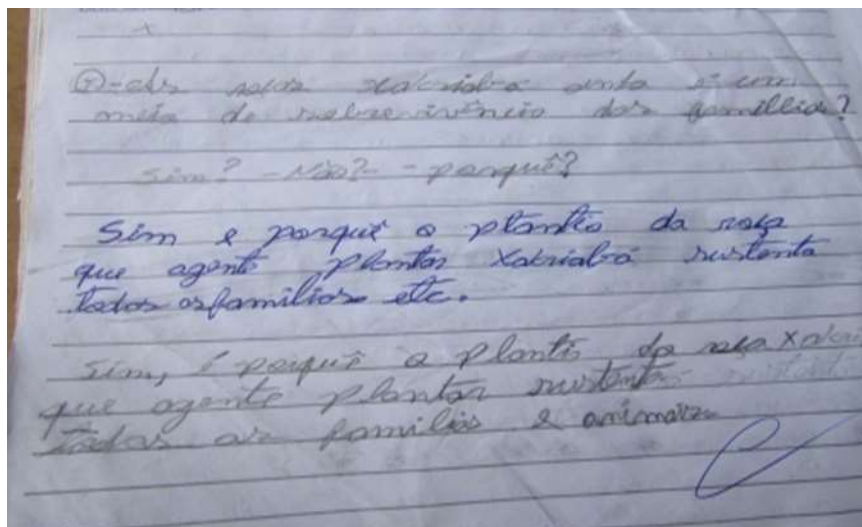 7-As roças xakriabá ainda é um
meio de sobrevivência das famíllia?
Sim? - Não? - porquê?
Sim e porquê o plantio da roça
que agente plantar Xakriabá sustenta
todas as familias etc.
Sim, é porquê o plantio da roça
que agente plantar sustenta
todas as familias e animais